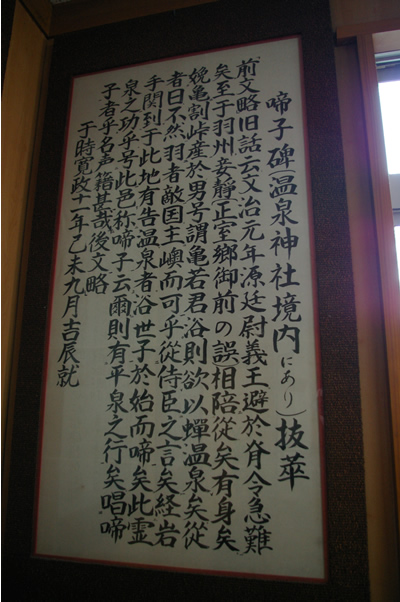 啼子碑(温泉神社境内にあり)抜萃
前文略旧話云文治元年源廷尉義王避於脊令急難
矣至于羽州妾靜正室郷御前の誤相陪從矣有身矣
娩亀割峠産於男号謂亀若君浴則欲以蟬温泉矣從
者曰不然羽者敵国主嶼而可乎從侍臣之言矣経岩
手関到于此地有告温泉者浴世子於始而啼矣此霊
泉之功乎号此邑称啼子云爾則有平泉之行矣唱啼
子者乎名声籍甚哉後文略
于時寛政十一年己未九月吉辰就